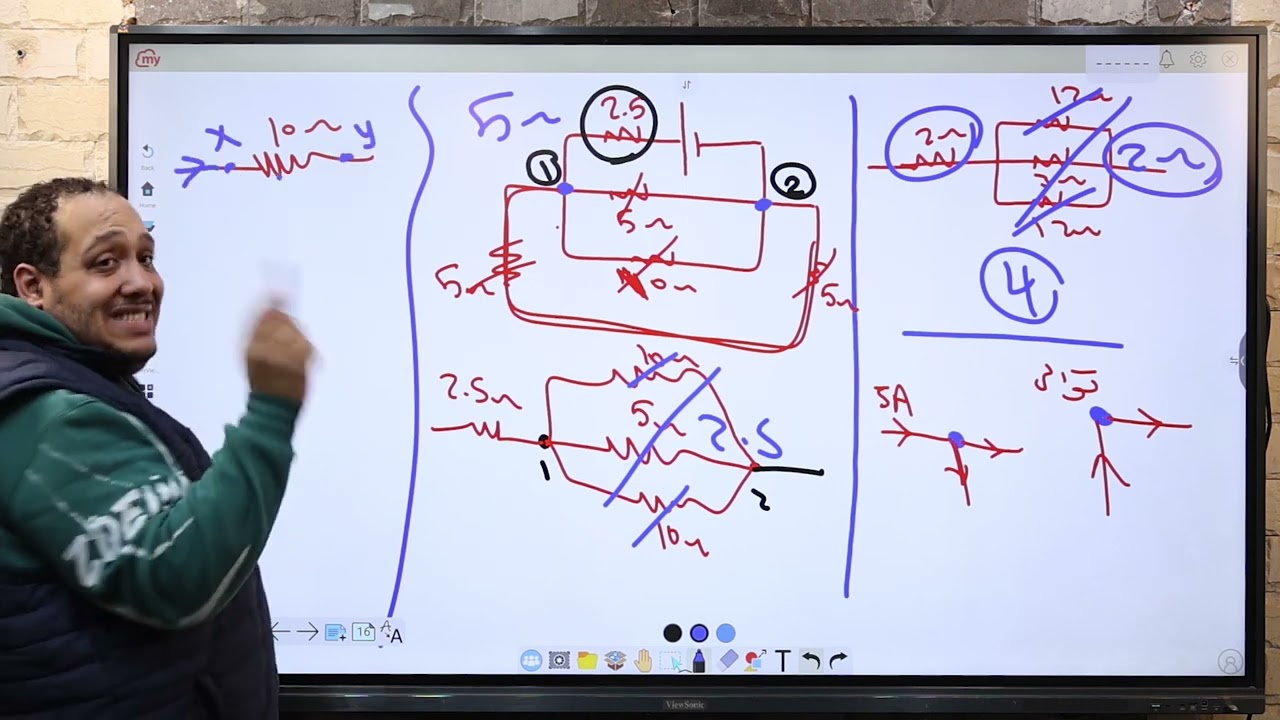 my
x 10Ω y
Back
Home
5Ω
2.5
1
2
5Ω
10Ω
5Ω
5Ω
2.5Ω
10Ω
5Ω
2.5
10Ω
1
2
2Ω
12Ω
3Ω
12Ω
2Ω
4
5A
16
A
A
T
ViewSonic